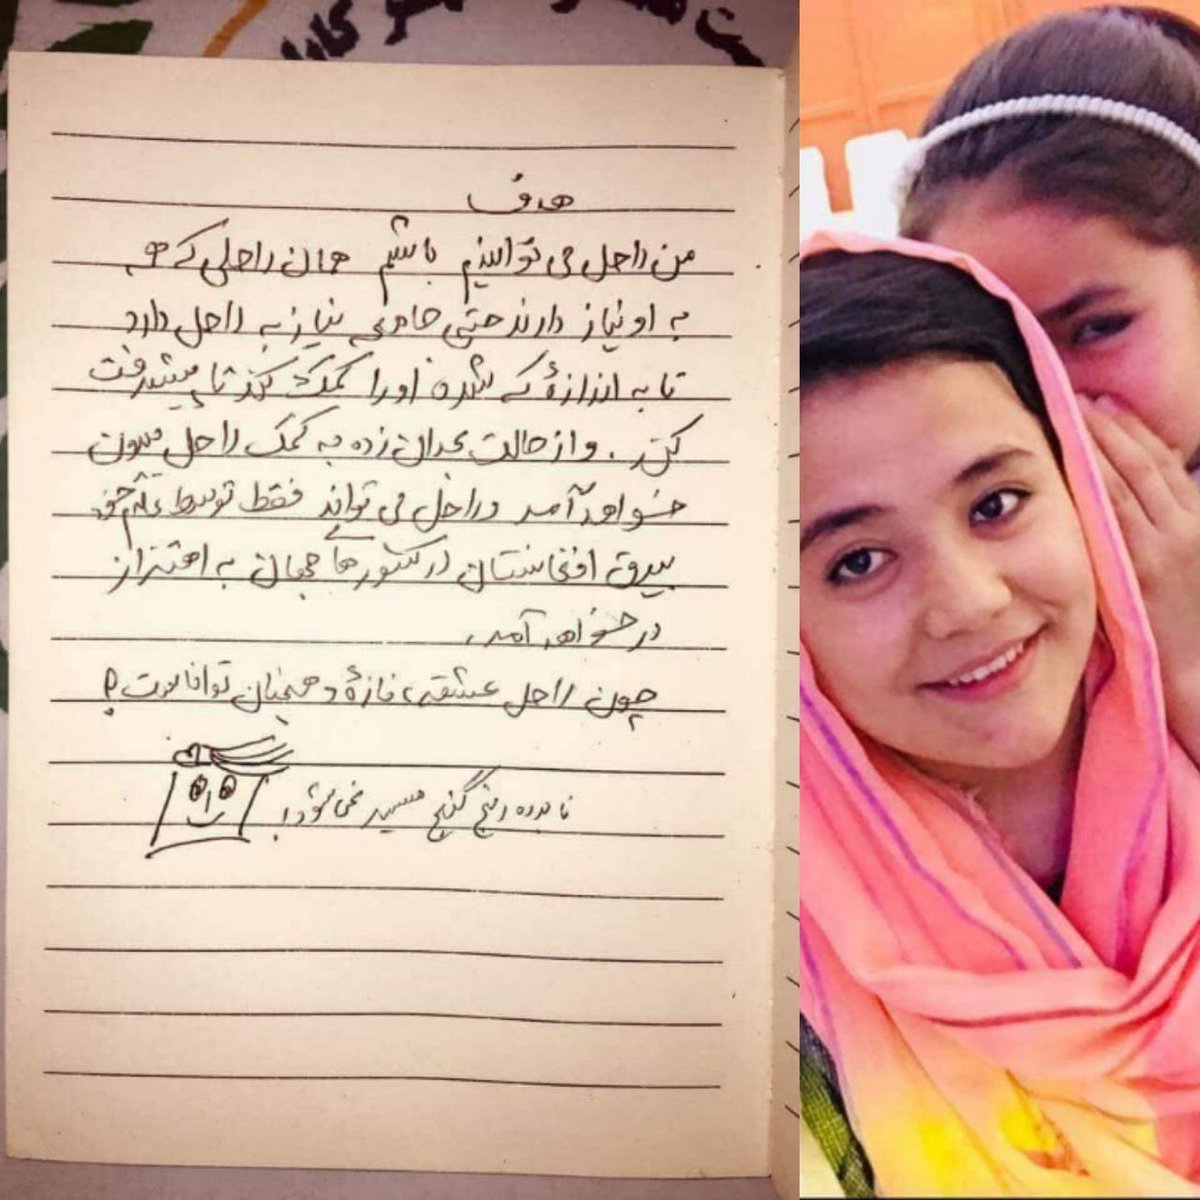 هدف
من راحل می توانیم باشم همان راحلی که همه
به او نیاز دارند حتی جامعه نیاز به راحل دارد
تا به اندازهٔ که شده او را کمک کند تا پیشرفت
کند. و از حالت بحران زده به کمک راحل بیرون
خواهد آمد و راحل می تواند فقط توسط قلم خود
بیرق افغانستان در کشورها جهان به اهتزاز
در خواهد آمد.
چون راحل عشقه، نازهٔ و همچنان توانا است؟
نابرده رنج گنج میسر نمی شود!